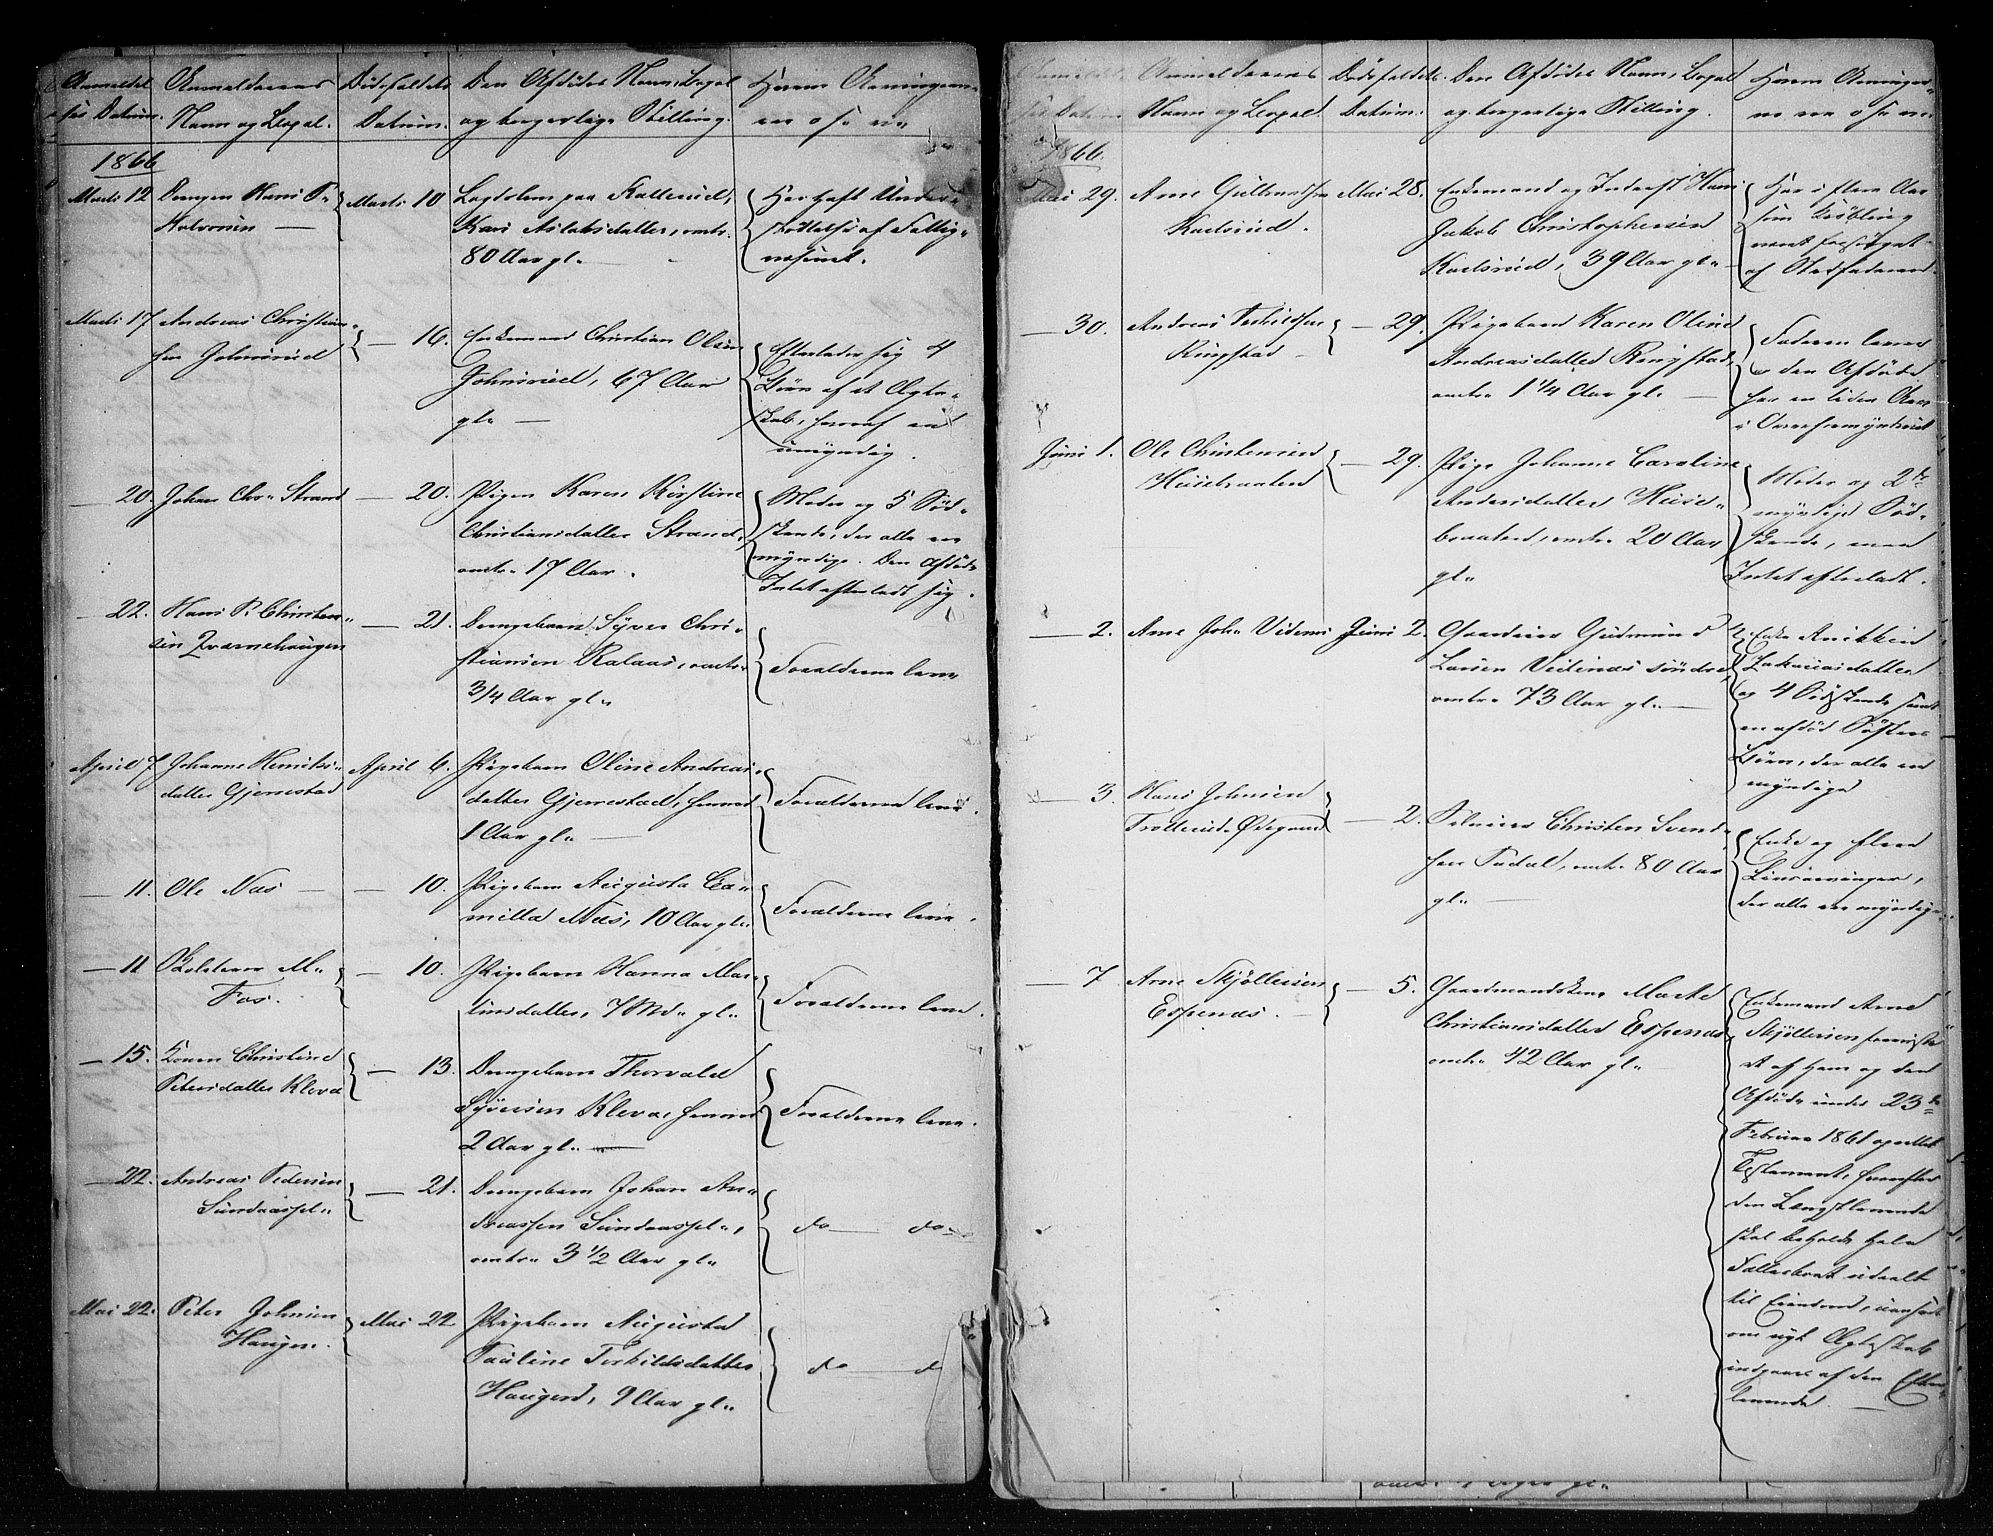 Anmeldel-
ses Datum.
Anmelderens
Navn og Bopæl.
Dødsfaldets
Datum.
Den Afdødes Navn, Bopæl
og borgerlige Stilling.
Hvem Arvingerne
ere o. s. v.
1866
Marts 12
Drengen Hans P.
Halvorsen —
Marts 10
Logdslem paa Kallerud,
Kari Aslaksdatter, omtr.
80 Aar gl. —
Har haft Under-
støttelse af Fattig-
væsenet.
Marts 17
Andreas Christian-
sen Johnsrud
— 16.
Enkemand Christian Olsen
Johnsrud, 67 Aar
gl. —
Efterlader sig 4
Börn af et Ægte-
skab, hvoraf en
umyndig.
— 20.
Johan Chr. Strand
— 20.
Pigen Karen Kirstine
Christiansdatter Strand,
omtr. 17 Aar.
Moder og 5 Sød-
skende, der alle ere
myndige. Den Afdøde
Intet efterladt sig.
— 22.
Hans P. Christen-
sen Qværnehaugen
— 21.
Drengebarn Syver Chri-
stiansen Ralaas, omtr.
3/4 Aar gl.
Forældrene leve
April 7
Johanne Henriks-
datter Gjerrestad
April 6.
Pigebarn Oline Andreas-
datter Gjerrestad, henved
1 Aar gl. —
Forældrene leve.
— 11.
Ole Næs —
— 10.
Pigebarn Augusta Ca-
milla Næs, 10 Aar gl.
Forældrene leve.
— 11
M.
Fos.
— 10.
Pigebarn Hanna Mar-
tinsdatter, 7 Md. gl.
Forældrene leve.
— 15.
Konen Christine
Petersdatter Kleva
— 13.
Drengebarn Thorvald
Syversen Kleva, henved
2 Aar gl. —
Forældrene leve.
— 22.
Andreas Pedersen
Sundaaspl.
— 21.
Drengebarn Johan An-
dreassen Sundaaspl.,
omtr. 3 1/2 Aar gl.
do — do —
Mai 22.
Peter Johnsen
Haugen.
Mai 22
Pigebarn Augusta
Pauline Terkildsdatter
Haugen, 9 Aar gl.
do — do
Anmeldel-
ses Datum
Anmelderens
Navn og Bopæl.
Dødsfaldets
Datum.
Den Afdødes Navn, Bopæl
og borgerlige Stilling.
Hvem Arvinger-
ne ere o. s. v.
1866.
Mai 29.
Arne Gulbrandsen
Karlsrud.
Mai 28.
Enkemand og Inderst Hans
Jakob Christophersen
Karlsrud, 39 Aar gl. —
Har i flere Aar
som Krøbling
været forsørget
af Stedfaderen.
— 30.
Andreas Terkildsen
Ringstad —
— 29.
Pigebarn Karen Oline
Andreasdatter Ringstad,
omtr. 1 1/4 Aar gl. —
Faderen lever
og den Afdøde
har en liden Arv
i Overformynderiet
Juni 1.
Ole Christensen
Husebraaten
— 29.
Pige Johanne Caroline
Andersdatter Huse-
braaten, omtr. 20 Aar
gl.
Moder og 2de
myndige Sød-
skende, men
Intet efterladt.
— 2.
Arne Joh. Videnæs
Juni 2.
Gaardeier Gudmund
Larsen Veidenæs søndre
omtr. 73 Aar gl. —
Enke Anikken
Zakariasdatter
og 4 Sødskende samt
en afdød Søsters
Børn, der alle ere
myndige
— 3.
Hans Johnsen
Trollerud Ødegaard
— 2.
Selveier Christen Svend-
sen Fadal, omtr. 80 Aar
gl. —
Enke og flere
Livsarvinger,
der alle ere myndige.
— 7
Arne Skjøllersen
Espenæs. —
— 5.
Gaardmandskone Marte
Christiansdatter Espenæs
omtr. 42 Aar gl.
Enkemand Arne
Skjøllersen foreviste
et af ham og den
Afdøde under 23de
Februar 1861 oprettet
Testament, hvorefter
den Længstlevende
skal beholde hele
Fællesboet udeelt
til Eiendom, uanseet
om nyt Ægteskab
indgaaes af den Efter-
levende. —